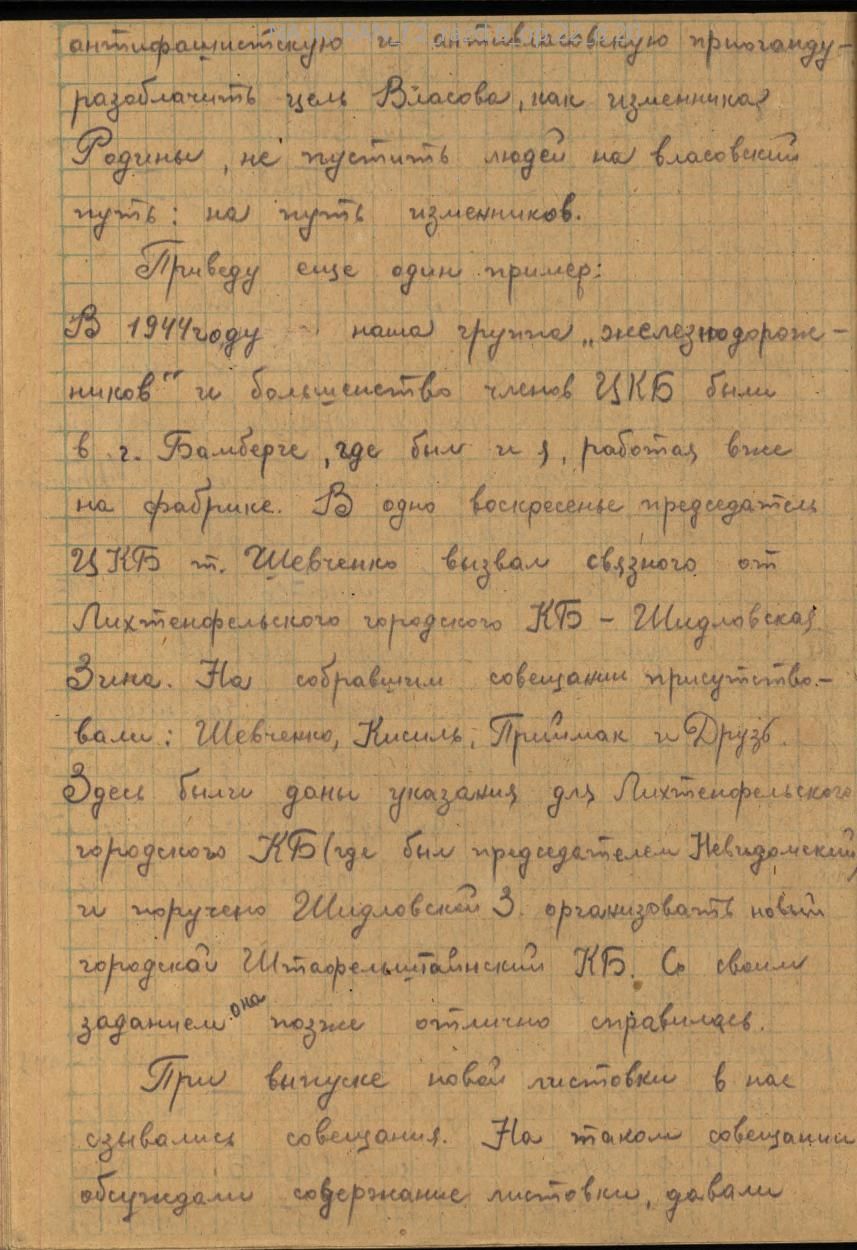 антифашистскую и антивласовскую пропаганду –
разоблачить цель Власова, как изменника
Родины, не пустить людей на власовский
путь: на путь изменников.
Приведу еще один пример:
В 1944 году наша группа „железнодорож–
ников" и большенство членов ЦКБ были
в г. Бамберге, где был и я, работая вже
на фабрике. В одно воскресенье председатель
ЦКБ т. Шевченко вызвал связного от
Лихтенфельского городского КБ – Шидловская
Зина. На собравшим совещании присутство–
вали: Шевченко, Кисиль, Приймак и Друзь.
Здесь были даны указания для Лихтенфельского
городского КБ (где был председателем Невидомский)
и поручено Шидловской З. организовать новый
городской Штафельштайнский КБ. Со своим
заданием она позже отлично справилась.
При выпуске новой листовки в нас
сзывались совещания. На таком совещании
обсуждали содержание листовки, давали